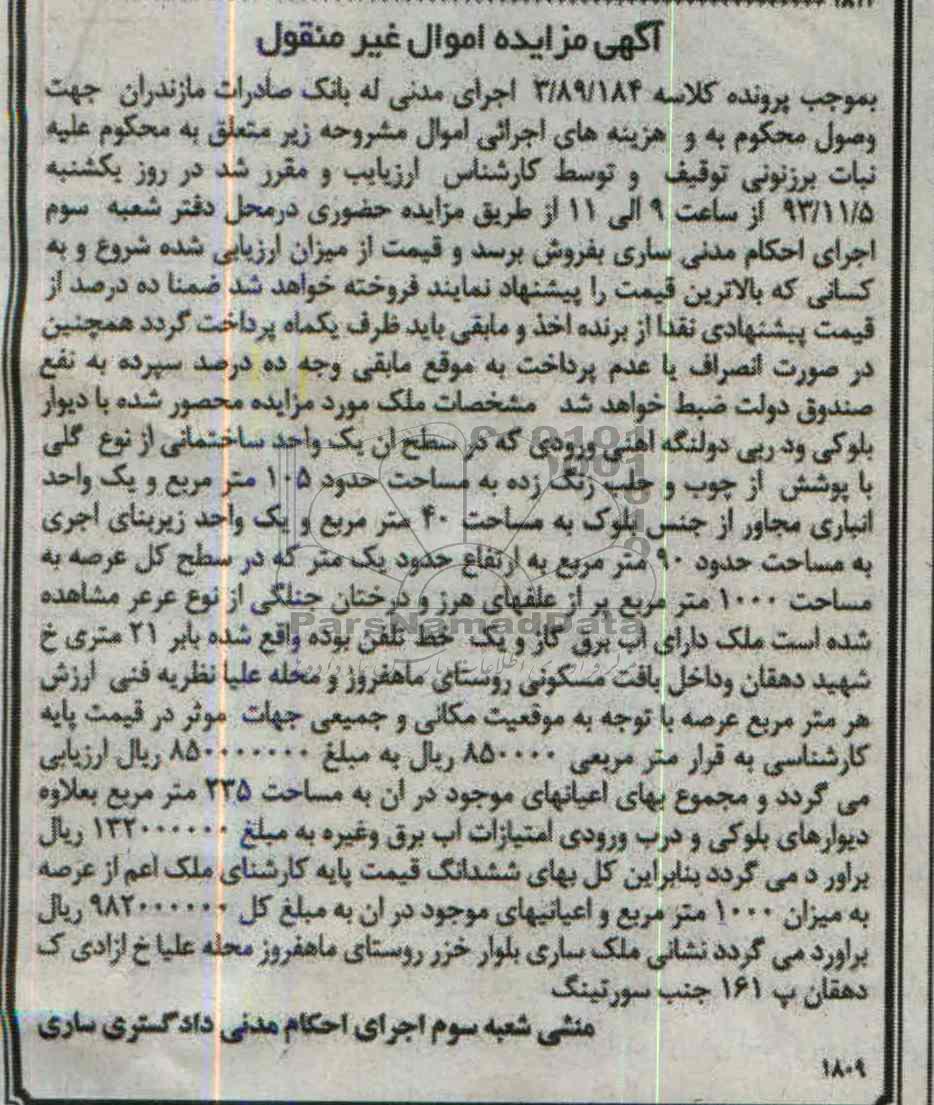 ۱۸۲۲
آگهی مزایده اموال غیر منقول
بموجب پرونده کلاسه ۳/۸۹/۱۸۴ اجرای مدنی له بانک صادرات مازندران جهت
وصول محکوم به و هزینه های اجرائی اموال مشروحه زیر متعلق به محکوم علیه
نبات برزنونی توقیف و توسط کارشناس ارزیایب و مقرر شد در روز یکشنبه
۹۳/۱۱/۵ از ساعت ۹ الی ۱۱ از طریق مزایده حضوری درمحل دفتر شعبه سوم
اجرای احکام مدنی ساری بفروش برسد و قیمت از میزان ارزیابی شده شروع و به
کسانی که بالاترین قیمت را پیشنهاد نمایند فروخته خواهد شد ضمنا ده درصد از
قیمت پیشنهادی نقدا از برنده اخذ و مابقی باید ظرف یکماه پرداخت گردد همچنین
در صورت انصراف یا عدم پرداخت به موقع مابقی وجه ده درصد سپرده به نفع
صندوق دولت ضبط خواهد شد مشخصات ملک مورد مزایده محصور شده با دیوار
بلوکی ود ربی دولنگه اهنی ورودی که در سطح ان یک واحد ساختمانی از نوع گلی
با پوشش از چوب و حلب زنگ زده به مساحت حدود ۱۰۵ متر مربع و یک واحد
انباری مجاور از جنس بلوک به مساحت ۴۰ متر مربع و یک واحد زیربنای اجری
به مساحت حدود ۹۰ متر مربع به ارتفاع حدود یک متر که در سطح کل عرصه به
مساحت ۱۰۰۰ متر مربع پر از علفهای هرز و درختان جنلگی از نوع عرعر مشاهده
شده است ملک دارای اب برق گاز و یک خط تلفن بوده واقع شده بابر ۲۱ متری خ
ParsNamadData
شهید دهقان وداخل بافت مسکونی روستای ماهفروز و محله علیا نظریه فنی ارزش
هر متر مربع عرصه با توجه به موقعیت مکانی و جمیعی جهات موثر در قیمت پایه
کارشناسی به قرار متر مربعی ۸۵۰۰۰۰ ریال به مبلغ ۸۵۰۰۰۰۰۰۰ ریال ارزیابی
می گردد و مجموع بهای اعیانهای موجود در ان به مساحت ۲۳۵ متر مربع بعلاوه
دیوارهای بلوکی و درب ورودی امتیازات اب برق وغیره به مبلغ ۱۳۲۰۰۰۰۰۰ ریال
براور د می گردد بنابراین کل بهای ششدانگ قیمت پایه کارشنای ملک اعم از عرصه
به میزان ۱۰۰۰ متر مربع و اعیانیهای موجود در ان به مبلغ کل ۹۸۲۰۰۰۰۰۰ ریال
براورد می گردد نشانی ملک ساری بلوار خزر روستای ماهفروز محله علیا خ ازادی ک
دهقان پ ۱۶۱ جنب سورتینگ
منشی شعبه سوم اجرای احکام مدنی دادگستری ساری
۱۸۰۹